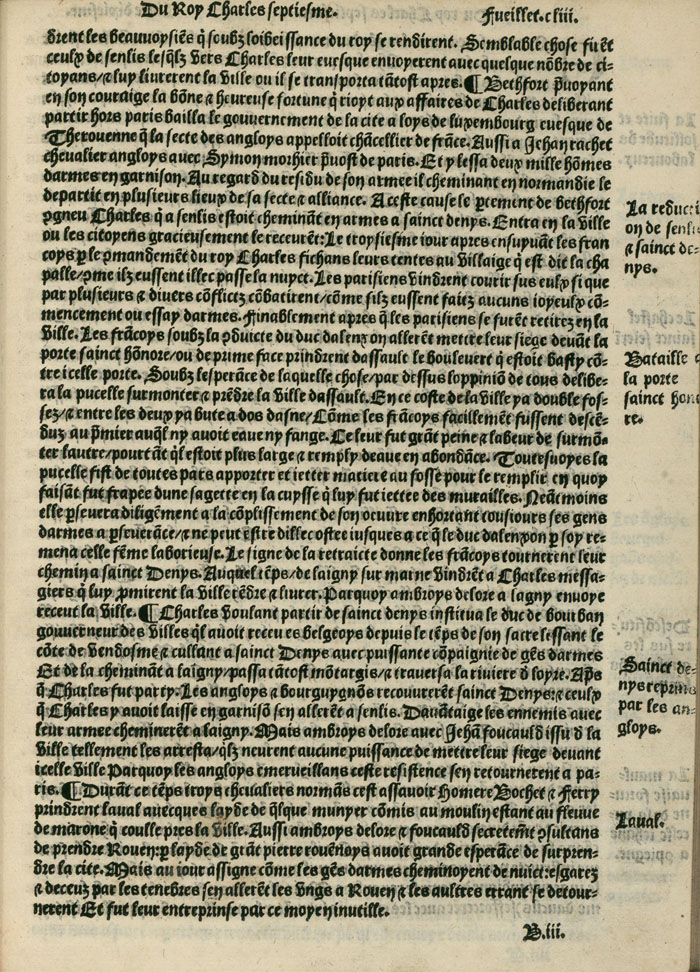 Du Roy Charles septiesme. Fueillet. cliii.
drent les beauuoysiēs q̄ soubz loibeissance du roy se rendirent. Semblable chose firēt
ceulx de senlis lesq̄lz vers Charles leur euesque enuoyerent auec quelque nōbre de ci-
toyans/⁊ luy liurerent la ville ou il se transporta tātost apres. ¶ Bethfort p̄uoyant
en son couraige la bōne ⁊ heureuse fortune q̄ rioyt aux affaires de Charles deliberant
partir hors paris bailla le gouuernement de la cite a loys de luxembourg euesque de
Therouenne q̄ la secte des angloys appelloit chācellier de frāce. Aussi a Jehan rachet
cheualier angloys auec Symon morhier p̄uost de paris. Et y lessa deux mille hōmes
darmes en garnison. Au regard du residu de son armee il cheminant en normandie le
departit en plusieurs lieux de sa secte ⁊ alliance. A ceste cause le ꝑtement de bethfort
ꝯgneu Charles q̄ a senlis estoit chemināt en armes a sainct denys. Entra en la ville
ou les citoyens gracieusement le receurēt: Le troysiesme iour apres ensuyuāt les fran
coys ꝑ le ꝯmandemēt du roy Charles fichans leurs tentes au villaige q̄ est dit la cha
palle/ꝯme ilz eussent illec passe la nuyct. Les parisiens vindrent courir sus eulx si que
par plusieurs ⁊ diuers cōflictz cōbatirent/cōme silz eussent faitz aucuns ioyeulx cō-
mencement ou essay darmes. Finablement apres q̄ les parisiens se furēt retirez en la
ville. Les frācoys soubz la ꝯduicte du duc dalenxon allerēt mettre leur siege deuāt la
porte sainct hōnore/ou de prime face prindrent dassault le bouleuert q̄ estoit basty cō-
tre icelle porte. Soubz lesperāce de laquelle chose/par dessus loppiniō de tous delibe-
ra la pucelle surmonter ⁊ prēdre la ville dassault. En ce coste de la ville ya double fos-
sez/⁊ entre les deux ya bute a dos dasne/Cōme les frācoys facillemēt fussent descē-
duz au p̄mier auq̄l ny auoit eaue ny fange. Ce leur fut grāt peine ⁊ labeur de surmō-
ter lautre/pourtāt q̄l estoit plus large ⁊ remply deaue en abondāce. Toutesuoyes la
pucelle fist de toutes pars apporter et ietter matiere au fosse pour le remplir en quoy
faisāt fut frapee dune sagette en la cuysse q̄ luy fut iettee des murailles. Neātmoins
elle ꝑseuera diligēment a la cōplissement de son oeuure enhortant tousiours ses gens
darmes a ꝑseuerāce/⁊ ne peut estre dillec ostee iusques a ce q̄ le duc dalenxon ꝑ soy re-
mena celle fēme laborieuse. Le signe de la retraicte donne les frācoys tournerent leur
chemin a sainct Denys. Auquel tēps/de laigny sur marne vindrēt a Charles messa-
giers q̄ luy ꝓmirent la ville rēdre ⁊ liurer. Parquoy ambroys delore a lagny enuoye
receut la ville. ¶ Charles voulant partir de sainct denys institua le duc de bourban
gouuerneur des villes q̄l auoit receues belgeoys depuis le tēps de son sacre lessant le
cōte de vendosme ⁊ cullant a sainct Denys auec puissante cōpaignie de gēs darmes
Et de la chemināt a laigny/passa tātost mōtargis/⁊ trauersa la riuiere d̄ loyre. Ap̄s
q̄ Charles fut party. Les angloys ⁊ bourguygnōs recouurerēt sainct Denys:⁊ ceulx
q̄ Charles y auoit laisse en garnisō sen allerēt a senlis. Dauātaige les ennemis auec
leur armee cheminerēt a laigny. Mais ambroys delore auec Jehā foucauld issu d̄ la
ville tellement les arresta/q̄lz neurent aucune puissance de mettre leur siege deuant
icelle ville Parquoy les angloys emerueillans ceste resistence sen retournerent a pa-
ris. ¶ Durāt ce tēps troys cheualiers normās cest assauoir Homere Bochet ⁊ Ferry
prindrent laual auecques layde de q̄lque munyer cōmis au moulin estant au fleuue
de marone q̄ coulle pres la ville. Aussi ambroys delore ⁊ foucauld secretemēt ꝯsultans
de prendre Rouen: ꝑ layde de grāt pierre rouēnoys auoit grande esperance de surpren-
dre la cite. Mais au iour assigne cōme les gēs darmes cheminoyent de nuict: esgarez
⁊ deceuz par les tenebres sen allerēt les vngs a Rouen ⁊ les aultres errant se detour-
nerent Et fut leur entreprinse par ce moyen inutille.
B.iii.
La reducti
on de senlis
⁊ sainct de-
nys.
Bataille a
la porte
sainct hono
re.
Sainct de-
nys reprins
par les an-
gloys.
Laual.